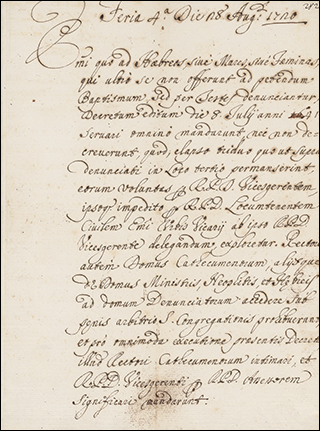 212
Feria 4.ª Die 18 Augti 1710
Emi quo ad Hebreos, sive Mares, sive Faeminas,
qui ultro se non offerunt ad petendum
Baptismum, sed per Testes denunciantur
Decretum editum die 8 Julij anni
servari omnino mandarunt, nec non de-
creverunt, quod, elapso triduo quo ut supra
denunciati in Loco tertio permanserint,
eorum voluntas R.P.D. Vicesgerentem
ipso impedito R.P.D. Locumtenentem
Civilem Emi Urbis Vicarij ab ipso R.P.D.
Vicesgerente delegandum, exploretur. Rectores
autem Domus Cathecumenorum alijsque
Domus Ministris, Neophitis et Hebreis
ad domum Denunciatorum accedere sub
penis arbitrio S. Congregationis prohibuerunt
et pro omnimoda executione presentis Decreti
Illud Rectori Cathecumenorum intimari, et
R.P.D. Vicesgerenti R.P.D. Assessorem
significari mandarunt.